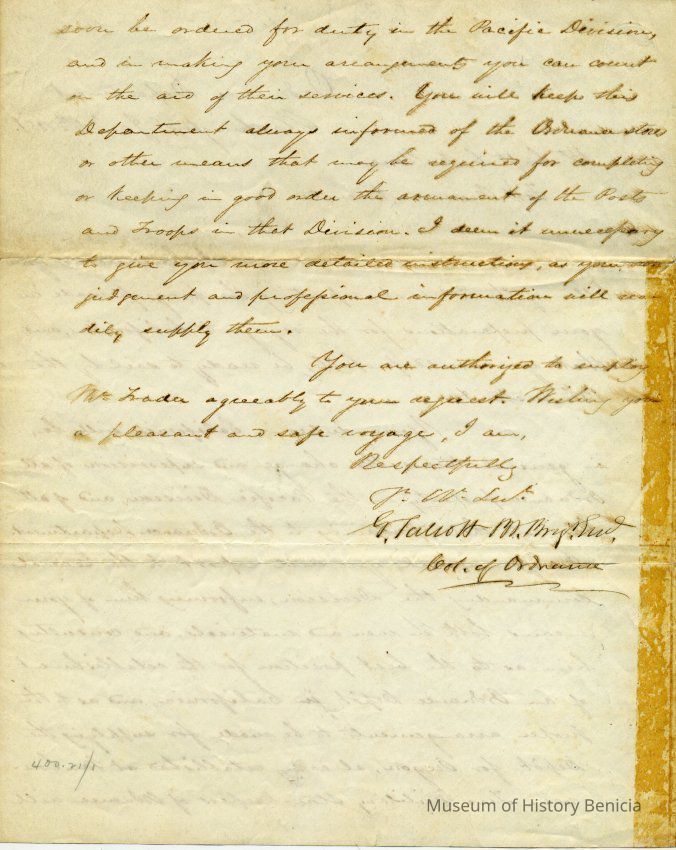 soon be ordered for duty in the Pacific Division,
and in making your arrangements you can count
on the aid of their services. You will keep this
Department always informed of the Ordnance stores
or other means that may be required for completing
or keeping in good order the armament of the Posts
and Troops in that Division. I deem it unnecessary
to give you more detailed instructions, as your own
judgement and professional information will rea
dily supply them.
You are authorized to employ
Mr. agreeably to your request. Wishing you
a pleasant and safe voyage, I am,
Respectfully
Yr. Ob. Svt.
G. Talcott Bt. Brig. Genl.
Col. of Ordnance
400.21/1
Museum of History Benicia